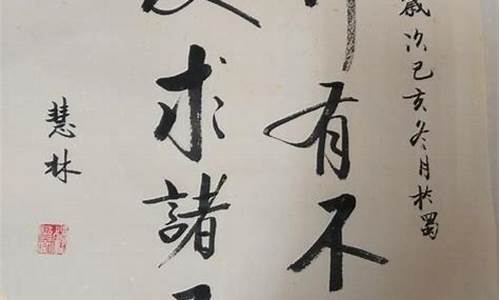 歲次己亥冬月於蜀
有不
求諸
慧林